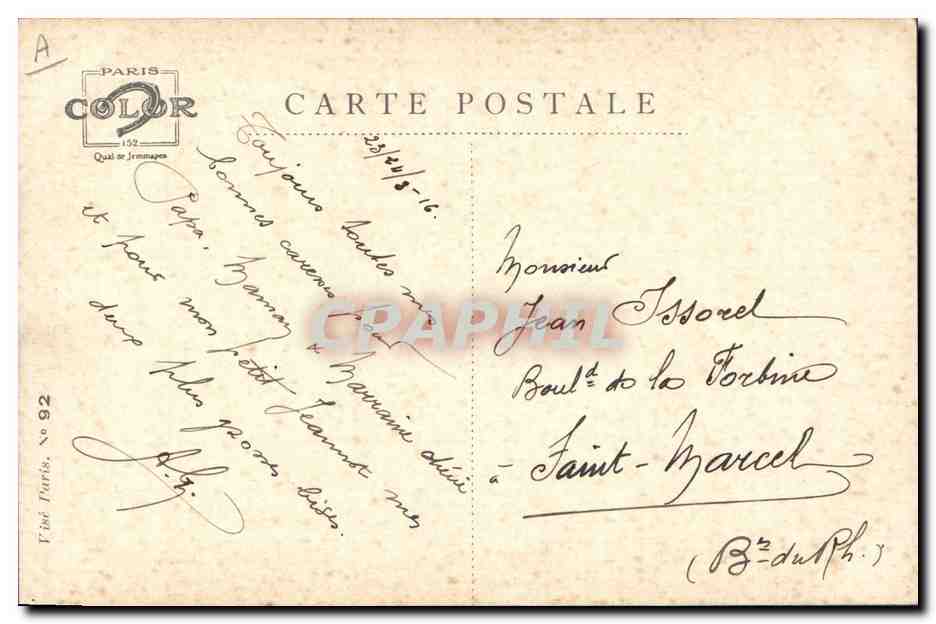 A
PARIS
COLOR
152
Quai de Jemmapes
CARTE POSTALE
23/24/3-16.
Toujours toutes mes
bonnes caresses pour
Papa, Maman & Marraine chérie
et pour mon petit Jeannot mes
deux plus grosses bises.
Monsieur
Jean Issorel
Bould de la Forbine
à Saint-Marcel
(Bes du Rh.)
CPAPHIL
Visé Paris. No 92